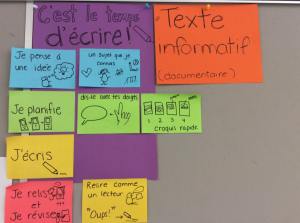 C'est le temps
d'écrire!
Texte
informatif
(documentaire)
Je pense à
une idée
un sujet que je
connais
Je planifie
dis-le avec tes doigts
1 2 3 4
croquis rapide
J'écris
Je relis
et
Je révise
Relire comme
un lecteur
"Oups!"